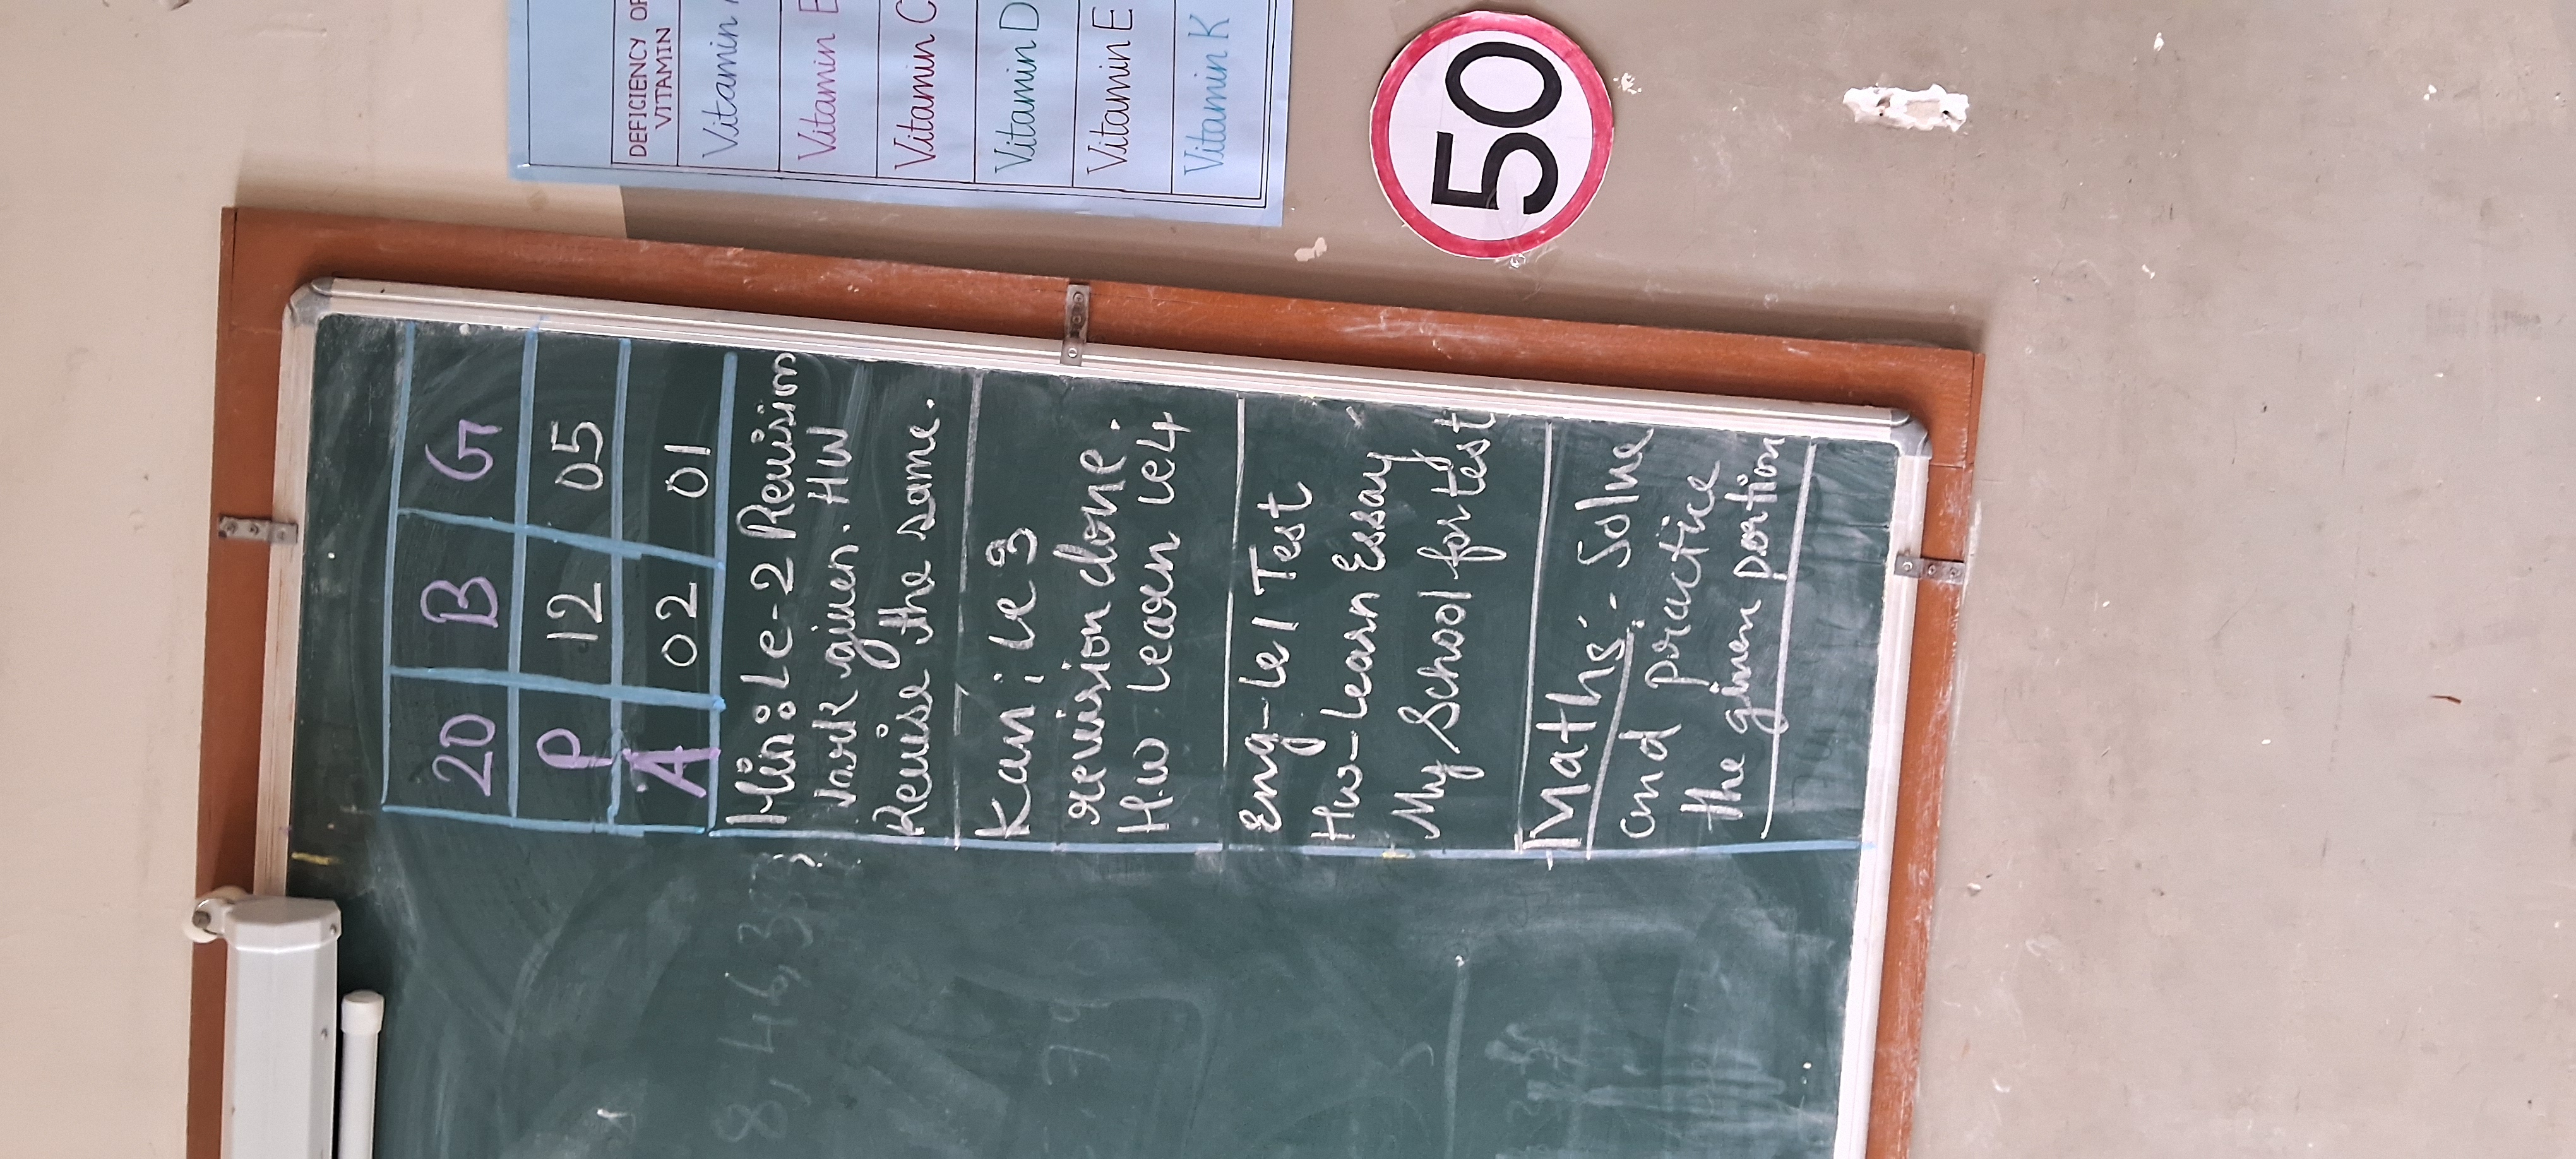 DEFICIENCY OF
VITAMIN
Vitamin
Vitamin
Vitamin C
Vitamin D
Vitamin E
Vitamin K
50
20 B G
P 12 05
A 02 01
Hin: Le-2 Revision
Work given. HW
Revise the same.
Kan: Le 3
revision done.
H.W Learn le4
Eng-Le 1 Test
Hw-Learn Essay
My School for test
Maths:- Solve
and practice
the given portion